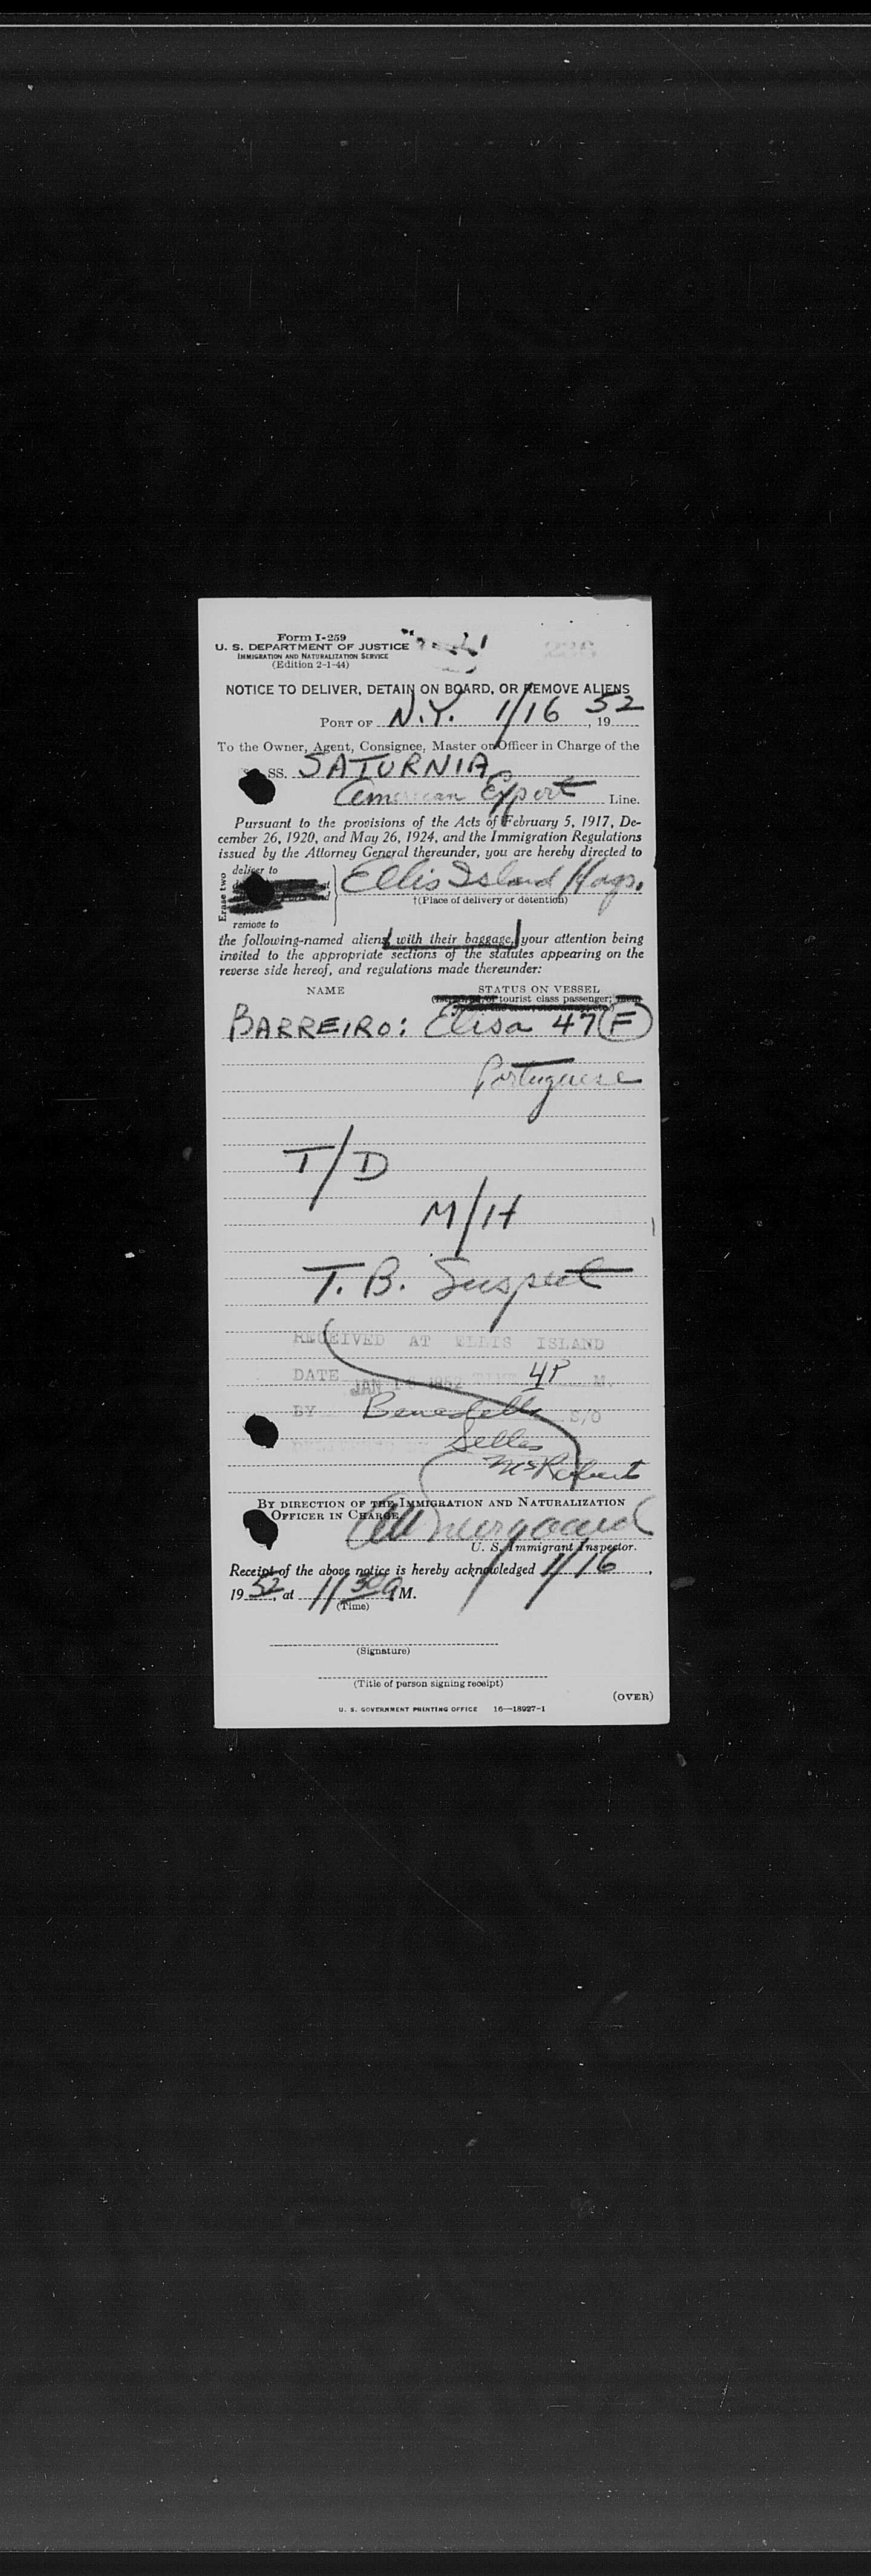 Form I-259
U. S. DEPARTMENT OF JUSTICE
IMMIGRATION AND NATURALIZATION SERVICE
(Edition 2-1-44)
NOTICE TO DELIVER, DETAIN ON BOARD, OR REMOVE ALIENS
PORT OF N.Y. 1/16, 1952
To the Owner, Agent, Consignee, Master or Officer in Charge of the
SS. SATURNIA
American Export Line.
Pursuant to the provisions of the Acts of February 5, 1917, De-
cember 26, 1920, and May 26, 1924, and the Immigration Regulations
issued by the Attorney General thereunder, you are hereby directed to
Erase two
deliver to
Ellis Island Hosp.
†(Place of delivery or detention)
remove to
the following-named aliens with their baggage, your attention being
invited to the appropriate sections of the statutes appearing on the
reverse side hereof, and regulations made thereunder:
NAME STATUS ON VESSEL
tourist class passenger;
BARREIRO: Elisa 47 (F)
Portuguese
T/D
M/H
T. B. Suspect
RECEIVED AT ELLIS ISLAND
DATE JAN 1952 TIME 4P M.
BY Benedetto S/O
BY DIRECTION OF THE IMMIGRATION AND NATURALIZATION
OFFICER IN CHARGE.
U. S. Immigrant Inspector.
Receipt of the above notice is hereby acknowledged 1/16,
1952, at 11 30 A M.
(Time)
(Signature)
(Title of person signing receipt)
(OVER)
U. S. GOVERNMENT PRINTING OFFICE 16—18927-1